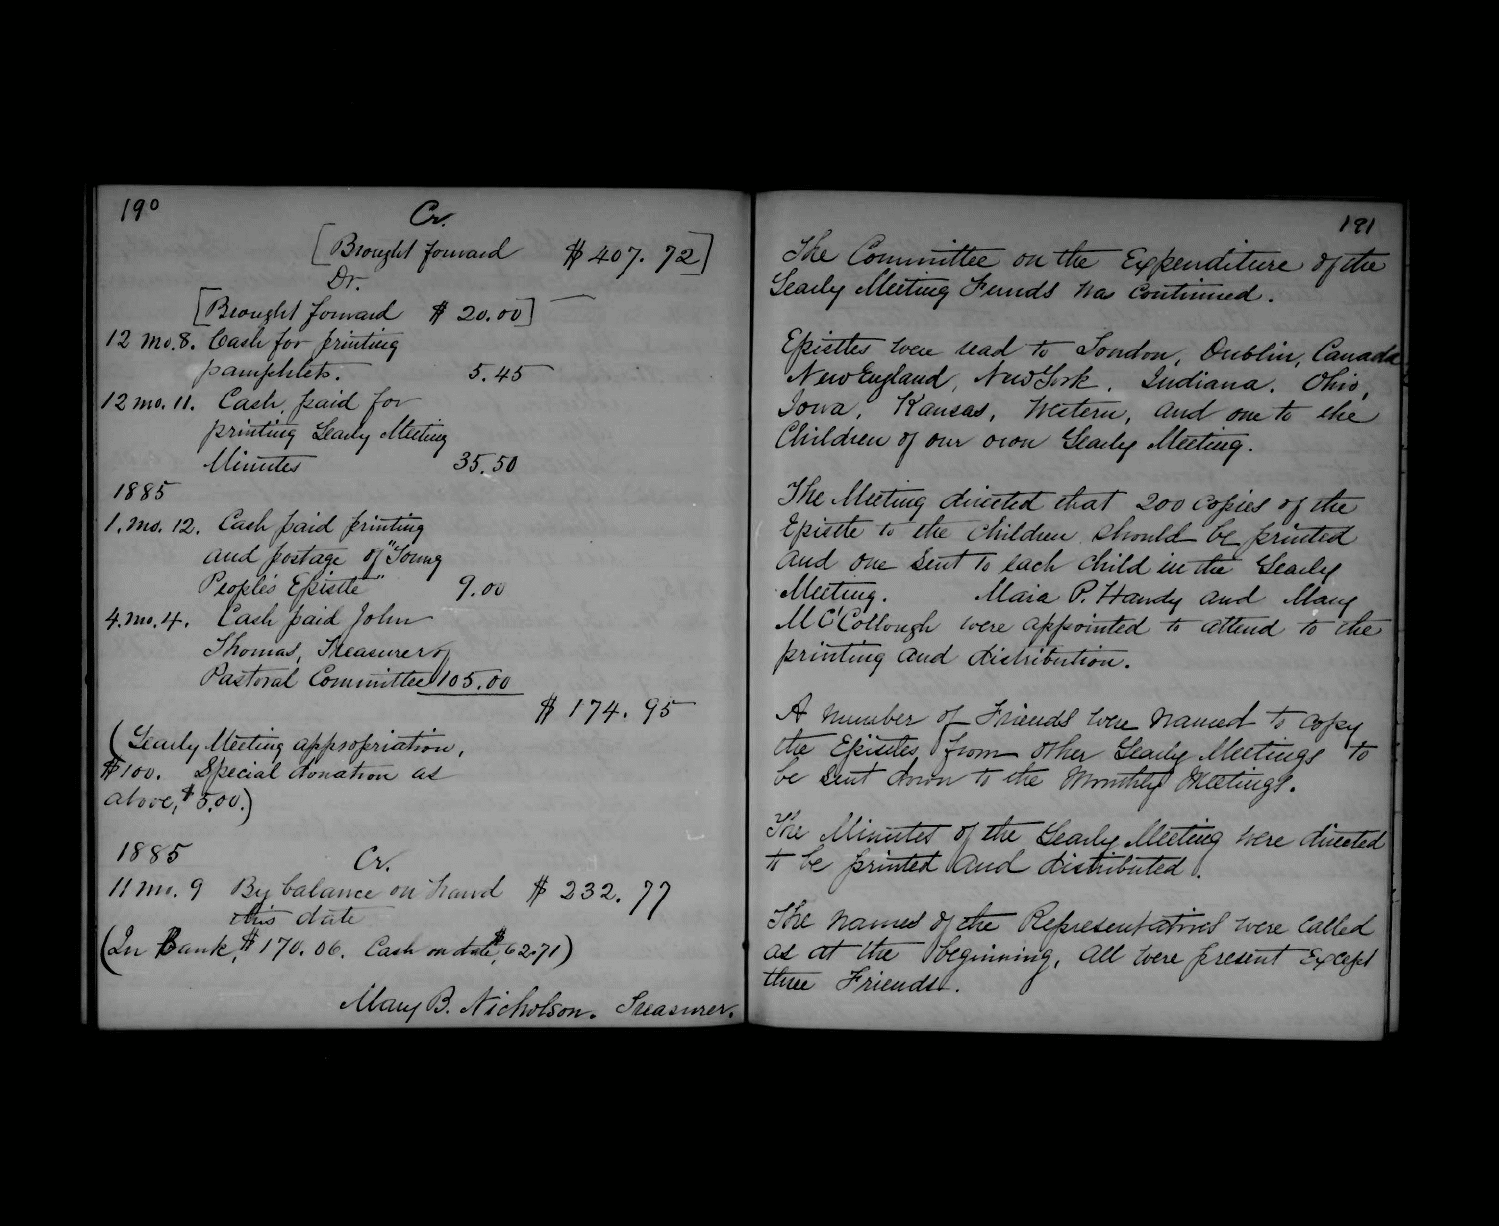 190
Cr.
[Brought forward $407.72]
Dr.
[Brought forward $20.00]
12 mo. 8. Cash for printing
pamphlets. 5.45
12 mo. 11. Cash paid for
printing Yearly Meeting
Minutes 35.50
1885
1. mo. 12. Cash paid printing
and postage of "Young
People's Epistle" 9.00
4. mo. 4. Cash paid John
Thomas, Treasurer of
Pastoral Committee 105.00
$174.95
(Yearly Meeting appropriation,
$100. Special donation as
above, $5.00.)
1885 Cr.
11 mo. 9 By balance on hand $232.77
this date
(In Bank, $170.06. Cash on date, $62.71)
Mary B. Nicholson. Treasurer.
191
The Committee on the Expenditure of the
Yearly Meeting Funds was continued.
Epistles were read to London, Dublin, Canada
New England, New York, Indiana, Ohio,
Iowa, Kansas, Western, and one to the
Children of our own Yearly Meeting.
The Meeting directed that 200 copies of the
Epistle to the Children should be printed
and one sent to each child in the Yearly
Meeting. Maria P. Handy and Mary
McCollough were appointed to attend to the
printing and distribution.
A number of Friends were named to copy
the Epistles from other Yearly Meetings to
be sent down to the Monthly Meetings.
The Minutes of the Yearly Meeting were directed
to be printed and distributed.
The names of the Representatives were called
as at the beginning, all were present except
three Friends.